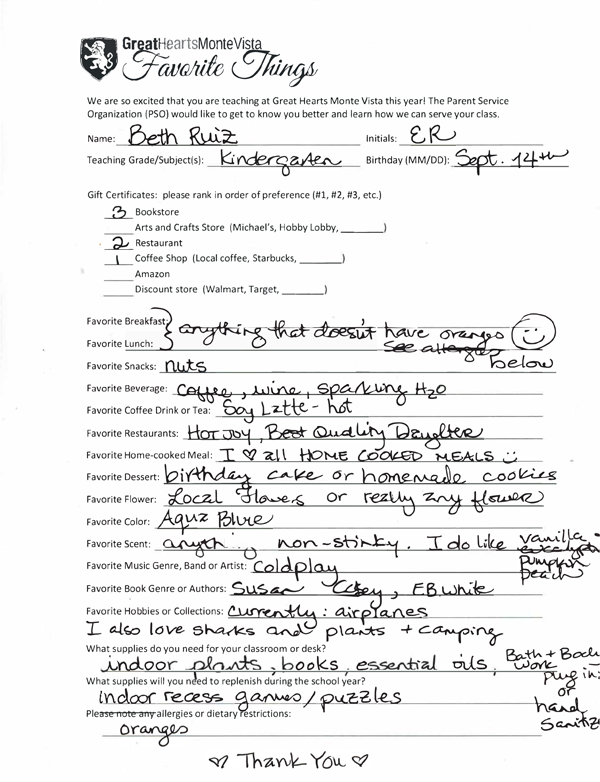 GreatHeartsMonteVista
Favorite Things
We are so excited that you are teaching at Great Hearts Monte Vista this year! The Parent Service
Organization (PSO) would like to get to know you better and learn how we can serve your class.
Name: Beth Ruiz Initials: ER
Teaching Grade/Subject(s): Kindergarten Birthday (MM/DD): Sept. 14th
Gift Certificates: please rank in order of preference (#1, #2, #3, etc.)
3 Bookstore
Arts and Crafts Store (Michael's, Hobby Lobby, ______)
2 Restaurant
1 Coffee Shop (Local coffee, Starbucks, ______)
Amazon
Discount store (Walmart, Target, ______)
Favorite Breakfast: anything that doesn't have oranges
Favorite Lunch: see allergies below
Favorite Snacks: nuts
Favorite Beverage: coffee, wine, sparkling H2O
Favorite Coffee Drink or Tea: Soy Latte - hot
Favorite Restaurants: Hot Joy, Best Quality Daughter
Favorite Home-cooked Meal: I ♡ all HOME COOKED MEALS ☺
Favorite Dessert: birthday cake or homemade cookies
Favorite Flower: Local Flowers or really any flower
Favorite Color: Aqua Blue
Favorite Scent: anything non-stinky. I do like vanilla
pumpkin
peach
Favorite Music Genre, Band or Artist: Coldplay
Favorite Book Genre or Authors: Susan, E.B. White
Favorite Hobbies or Collections: currently: airplanes
I also love sharks and plants + camping
What supplies do you need for your classroom or desk?
indoor plants, books, essential oils, Bath + Body
work
plug in
or
hand
What supplies will you need to replenish during the school year?
Indoor recess games/puzzles
Please note any allergies or dietary restrictions:
oranges
♡ Thank You ♡